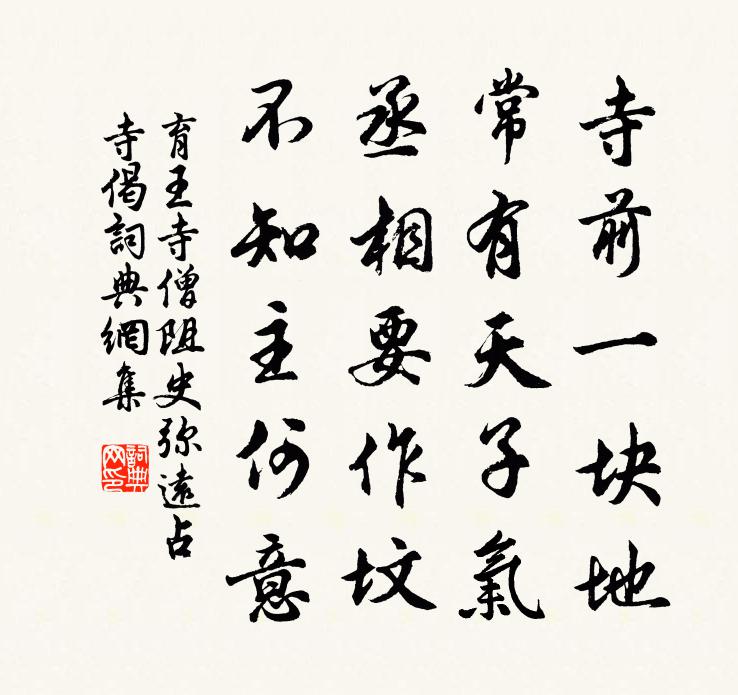 寺前一块地
常有天子氣
丞相要作坟
不知主何意
育王寺僧阻史弥遠占
寺偈詞典網集
詞典网印